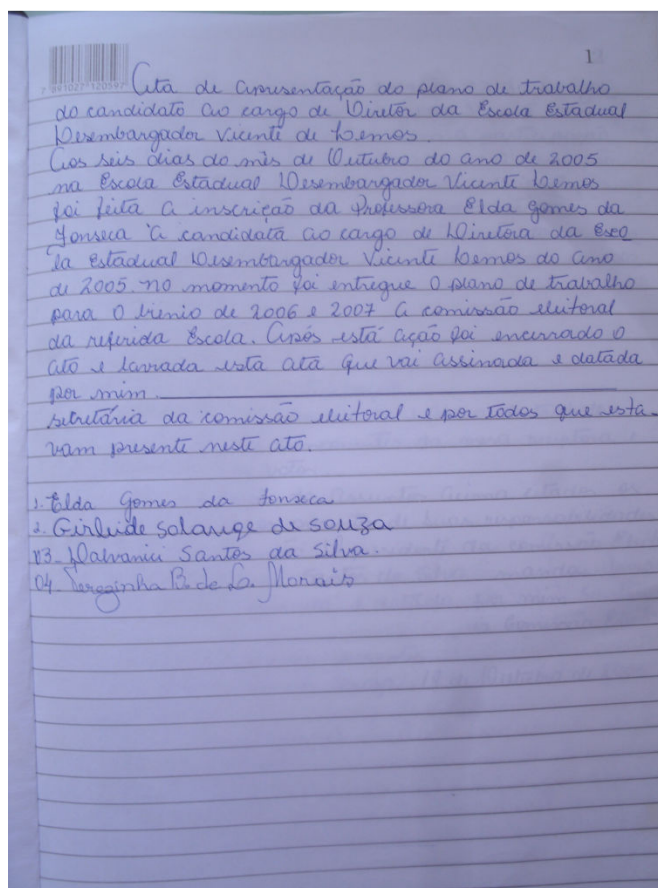 1
7 891027 120597
Ata de apresentação do plano de trabalho
do candidato ao cargo de Diretor da Escola Estadual
Desembargador Vicente de Lemos.
Aos seis dias do mês de Outubro do ano de 2005
na Escola Estadual Desembargador Vicente Lemos
foi feita a inscrição da Professora Elda Gomes da
Fonseca a candidata ao cargo de Diretora da Esco
la Estadual Desembargador Vicente Lemos do ano
de 2005. no momento foi entregue o plano de trabalho
para o bienio de 2006 e 2007 a comissão eleitoral
da referida Escola. Após está ação foi encerrado o
ato e lavrada esta ata que vai assinada e datada
por mim.
secretária da comissão eleitoral e por todos que esta-
vam presente neste ato.
1. Elda Gomes da Fonseca
2. Girleide Solange de Souza
03. Dalvanici Santos da Silva.
04. Terezinha B. de L. Morais